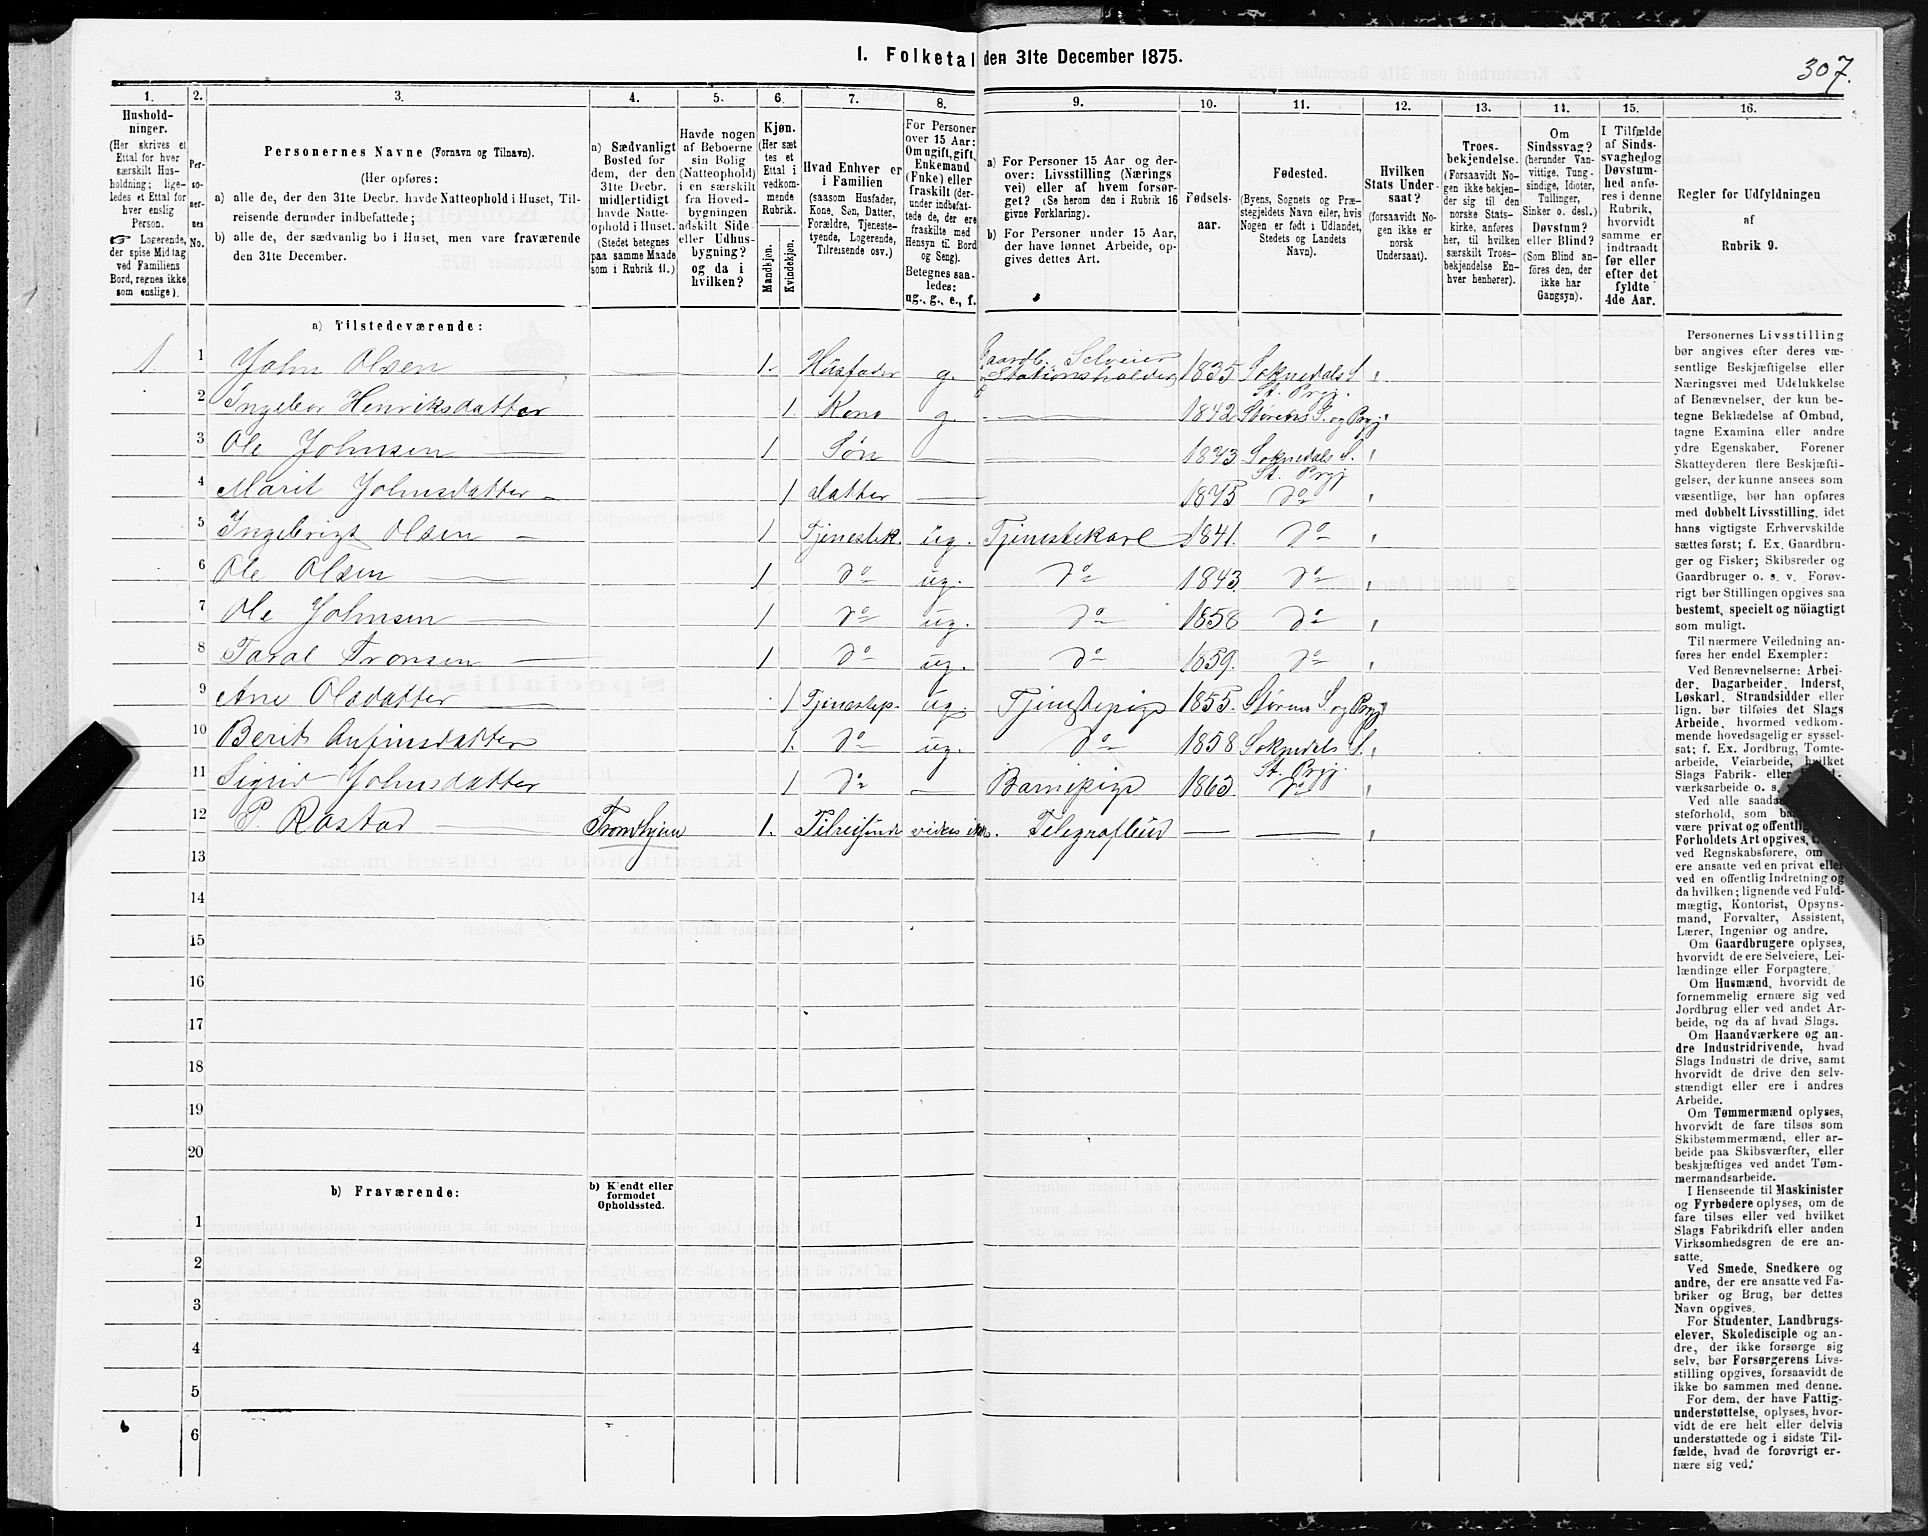 I. Folketal den 31te December 1875.
307.
1. 2. 3. 4. 5. 6. 7. 8. 9. 10. 11. 12. 13. 14. 15. 16.
Hushold-
ninger.
(Her skrives et
Ettal for hver
særskilt Hus-
holdning; lige-
ledes et Ettal for
hver enslig
Person.
☞ Logerende,
der spise Middag
ved Familiens
Bord, regnes ikke
som enslige).
Per-
so-
ner-
nes
No.
Personernes Navne (Fornavn og Tilnavn).
(Her opføres:
a) alle de, der den 31te Decbr. havde Natteophold i Huset, Til-
reisende derunder indbefattede;
b) alle de, der sædvanlig bo i Huset, men vare fraværende
den 31te December.
a) Sædvanligt
Bosted for
dem, der den
31te Decbr.
midlertidigt
havde Natte-
ophold i Huset.
(Stedet betegnes
paa samme Maade
som i Rubrik 11.)
Havde nogen
af Beboerne
sin Bolig
(Natteophold)
i en særskilt
fra Hoved-
bygningen
adskilt Side-
eller Udhus-
bygning?
og da i
hvilken?
Kjøn.
(Her sæt-
tes et
Ettal i
vedkom-
mende
Rubrik.
Mandkjøn.
Kvindekjøn.
Hvad Enhver er
i Familien
(saasom Husfader,
Kone, Søn, Datter,
Forældre, Tjeneste-
tyende, Logerende,
Tilreisende osv.)
For Personer
over 15 Aar:
Om ugift, gift,
Enkemand
(Enke) eller
fraskilt (der-
under indbefat-
tede de, der ere
fraskilte med
Hensyn til Bord
og Seng).
Betegnes saa-
ledes:
ug., g., e., f.
a) For Personer 15 Aar og der-
over: Livsstilling (Nærings-
vei) eller af hvem forsør-
get? (Se herom den i Rubrik 16
givne Forklaring).
b) For Personer under 15 Aar,
der have lønnet Arbeide, op-
gives dettes Art.
Fødsels-
aar.
Fødested.
(Byens, Sognets og Præ-
stegjeldets Navn eller, hvis
Nogen er født i Udlandet,
Stedets og Landets
Navn).
Hvilken
Stats Under-
saat?
(forsaavidt No-
gen ikke er
norsk
Undersaat).
Troes-
bekjendelse.
(Forsaavidt No-
gen ikke bekjen-
der sig til den
norske Stats-
kirke, anføres
her, til hvilken
særskilt Troes-
bekjendelse En-
hver henhører).
Om
Sindssvag?
(herunder Van-
vittige, Tung-
sindige, Idioter,
Tullinger,
Sinker o. desl.)
Døvstum?
eller Blind?
(Som Blind an-
føres den, der
ikke har
Gangsyn).
I Tilfælde
af Sinds-
svaghed og
Døvstum-
hed anfø-
res i denne
Rubrik,
hvorvidt
samme er
indtraadt
før eller
efter det
fyldte
4de Aar.
Regler for Udfyldningen
af
Rubrik 9.
a) Tilstedeværende:
1. 1 John Olsen 1. Husfader g. Gaardb. Selveier og Stationsholder 1835 Soknedals S. St. Prgj.
2 Ingebor Henriksdatter 1. Kone g. 1842 Størens S. og Prgj
3 Ole Johnsen 1 Søn 1873 Soknedals S. St. Prgj
4 Marit Johnsdatter 1 Datter 1875 do
5 Ingebrigt Olsen 1 Tjenestek. ug. Tjenestekarl 1841. do
6 Ole Olsen 1 do ug. do 1843. do
7 Ole Johnsen 1 do ug. do 1858 do
8 Taral Tronsen 1 do ug. do 1859. do
9 Ane Olsdatter 1 Tjenestep. ug. Tjenstepige 1855. Størens S. og Prgj
10 Berit Anfinsdatter 1. do ug. do 1858 Soknedals S. St. Prgj.
11 Sigrid Johnsdatter 1 do Barnepige 1863. do
12 P. Rostad Trondhjem 1. Tilreisende Telegrafbud
13
14
15
16
17
18
19
20
b) Fraværende:
b) Kjendt eller
formodet
Opholdssted.
1
2
3
4
5
6
Personernes Livsstilling
bør angives efter deres væ-
sentlige Beskjæftigelse eller
Næringsvei med Udelukkelse
af Benævnelser, der kun be-
tegne Beklædelse af Ombud,
tagne Examina eller andre
ydre Egenskaber. Forener
Skatteyderen flere Beskjæfti-
gelser, der kunne ansees som
væsentlige, bør han opføres
med dobbelt Livsstilling, idet
hans vigtigste Erhvervskilde
sættes først; f. Ex. Gaardbru-
ger og Fisker; Skibsreder og
Gaardbruger o. s. v. Forøv-
rigt bør Stillingen opgives saa
bestemt, specielt og nöiagtigt
som muligt.
Til nærmere Veiledning an-
føres her endel Exempler:
Ved Benævnelserne: Arbei-
der, Dagarbeider, Inderst,
Løskarl, Strandsidder eller
lign. bør tilføies det Slags
Arbeide, hvormed vedkom-
mende hovedsagelig er syssel-
sat; f. Ex. Jordbrug, Tomte-
arbeide, Veiarbeide, hvilket
Slags Fabrik- eller
værksarbeide o. s.
Ved alle saadan
steforhold, som
være privat og offentlig
Forholdets Art opgives,
ved Regnskabsførere, om
ere ansatte ved en privat eller
ved en offentlig Indretning og
da hvilken; lignende ved Fuld-
mægtig, Kontorist, Opsyns-
mand, Forvalter, Assistent,
Lærer, Ingeniør og andre.
Om Gaardbrugere oplyses,
hvorvidt de ere Selveiere, Lei-
lændinge eller Forpagtere.
Om Husmænd, hvorvidt de
fornemmelig ernære sig ved
Jordbrug eller ved andet Ar-
beide, og da af hvad Slags.
Om Haandværkere og an-
dre Industridrivende, hvad
Slags Industri de drive, samt
hvorvidt de drive den selv-
stændigt eller ere i andres
Arbeide.
Om Tømmermænd oplyses,
hvorvidt de fare tilsøs som
Skibstømmermænd, eller ar-
beide paa Skibsværfter, eller
beskjæftiges ved andet Tøm-
mermandsarbeide.
I Henseende til Maskinister
og Fyrbødere oplyses, om de
fare tilsøs eller ved hvilket
Slags Fabrikdrift eller anden
Virksomhedsgren de ere an-
satte.
Ved Smede, Snedkere og
andre, der ere ansatte ved Fa-
briker og Brug, bør dettes
Navn opgives.
For Studenter, Landbrugs-
elever, Skoledisciple og an-
dre, der ikke forsørge sig
selv, bør Forsørgerens Livs-
stilling opgives, forsaavidt de
ikke bo sammen med denne.
For dem, der have Fattig-
understøttelse, oplyses, hvor-
vidt de ere helt eller delvis
understøttede og i sidste Til-
fælde, hvad de forøvrigt er-
nære sig ved.